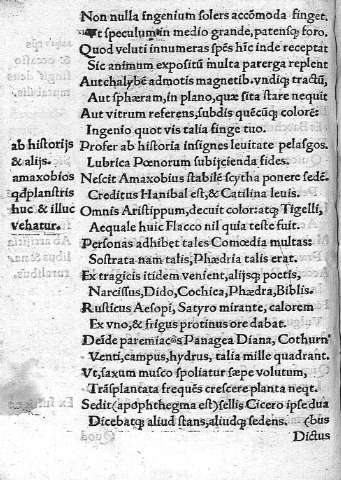 Non nulla ingenium solers accōmoda finget.
Aut speculum in medio grande, patensq; foro.
Quod veluti innumeras spēs hīc inde receptat
Sic animum expositū multa parerga replent
Aut chalybē admotis magnetib. vndiq; tractū,
Aut sphæram, in plano, quæ sita stare nequit
Aut vitrum referens, subdis quēcūq; colorē:
Ingenio quot vis talia finge tuo.
ab historijs
Profer ab historia insignes leuitate pelasgos.
& alijs.
Lubrica Pœnorum subijcienda fides.
amaxobios
Nescit Amaxobius stabilē scytha ponere sedē.
qd plaustris
Creditus Hanibal est, & Catilina leuis.
huc & illuc
Omnis Aristippum, decuit color: atq; Tigelli,
vehatur.
Aequale huic Flacco nil quia teste fuit.
Personas adhibet tales Comœdia multas:
Sostrata nam talis, Phædria talis erat.
Ex tragicis itidem venient, alijsq; poetis,
Narcissus, Dido, Cochica, Phædra, Biblis.
Rusticus Aesopi, Satyro mirante, calorem
Ex vno, & frigus protinus ore dabat.
Deīde paremiacos Panagea Diana, Cothurn⁹
Venti, campus, hydrus, talia mille quadrant.
Vt, saxum musco spoliatur sæpe volutum,
Trāsplantata frequēs crescere planta neqt.
Sedit (apophthegma est) sellis Cicero ipse dua
Dicebatq; aliud stans, aliudq; sedens. (bus
Dictus